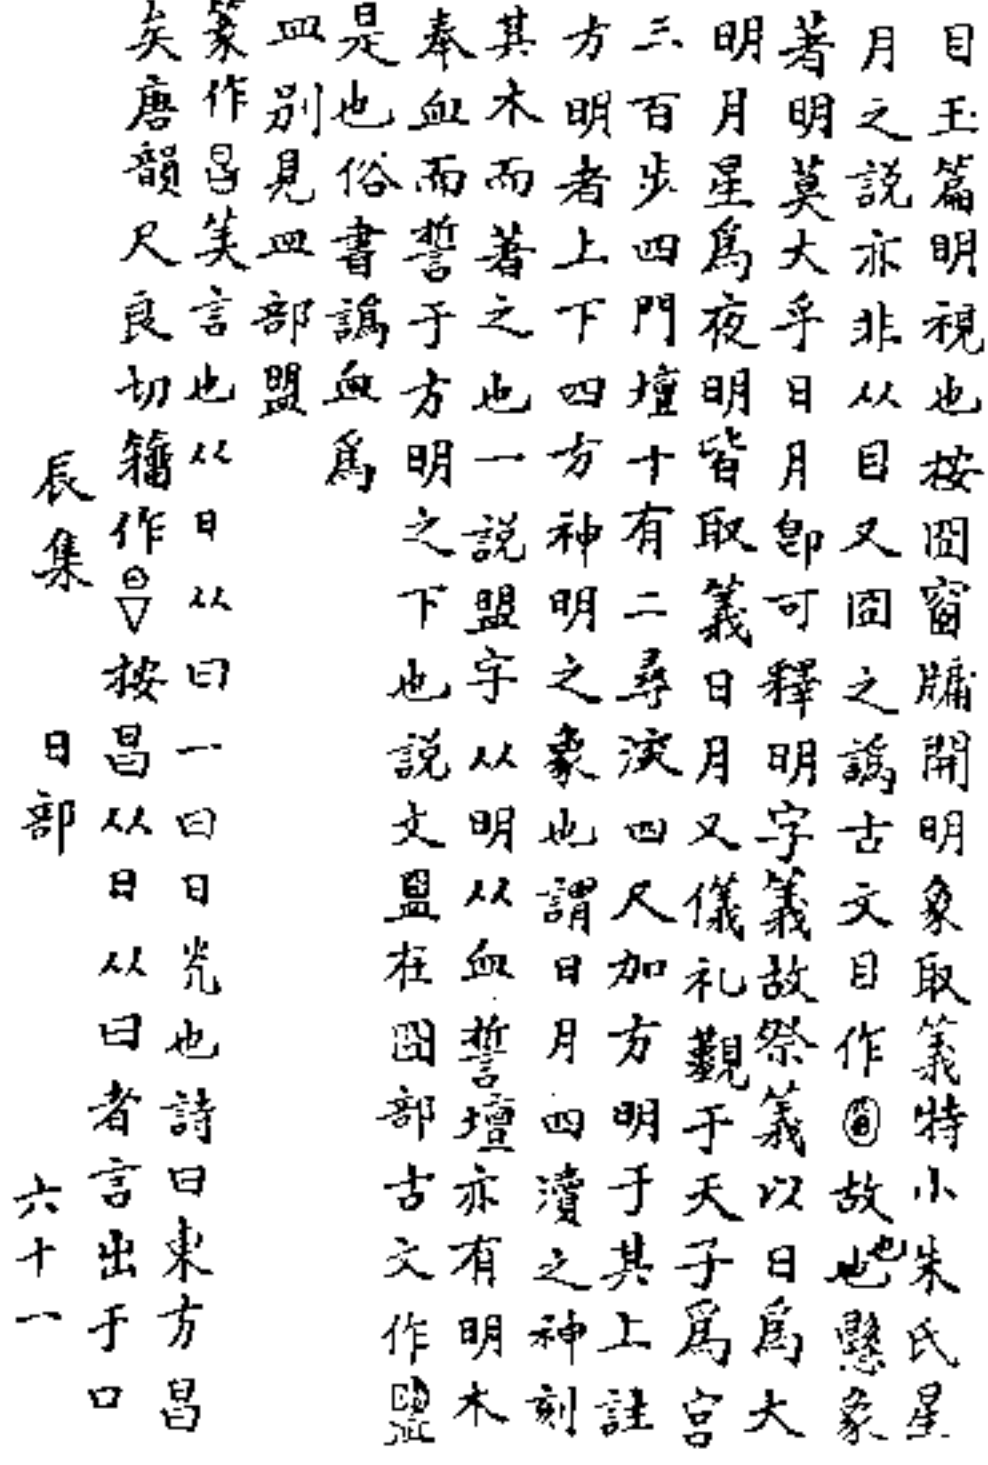 目玉篇明視也按囧窗牗開明象取義特小朱氏星
月之説亦非从目又囧之譌古文目作故也也懸象
著明莫大乎日月卽可釋明字義故祭義以日爲大
明月星爲夜明皆取義日月又儀礼覲于天子爲宮
三百步四門壇十有二尋深四尺加方明于其上註
方明者上下四方神明之象也謂日月四瀆之神刻
其木而著之也一説盟字从明从血誓壇亦有明木
奉血而誓于方明之下也説文盟在囧部古文作
是也俗書譌血爲
皿別見皿部盟
篆作昌美言也从日从曰一曰日光也詩曰東方昌
矣唐韻尺良切籒作按昌从日从曰者言出于口
辰集 日部 六十一